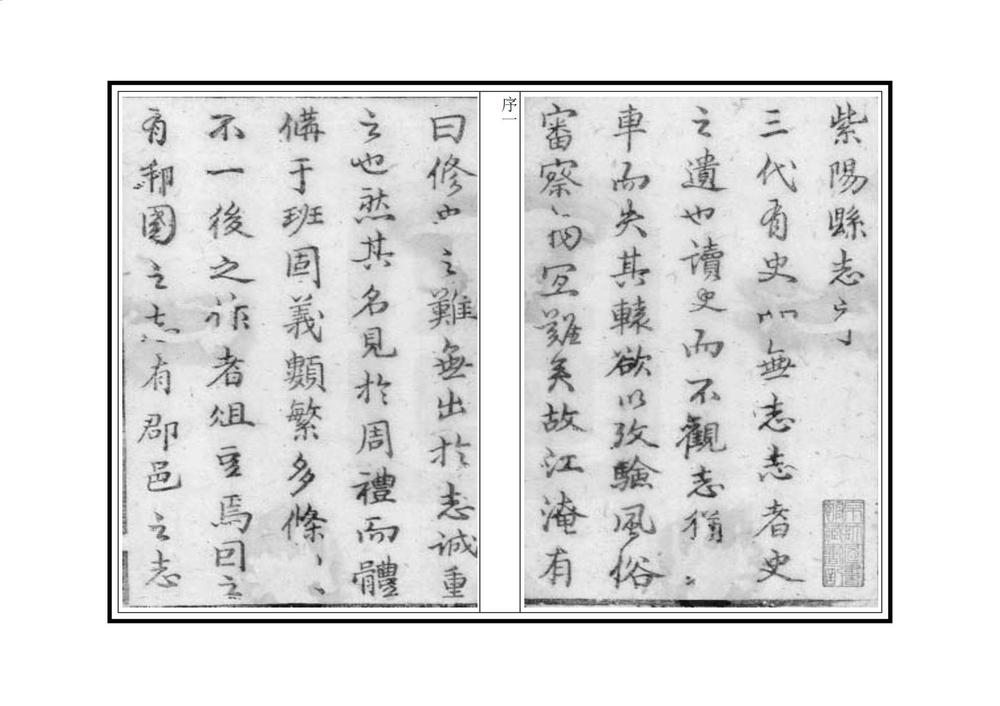 紫陽縣志序
三代有史必無志志者史
之遺也讀史而不觀志猶
車而失其轅欲以攷驗風俗
審察物宜難矣故江淹有
序一
曰修史之難無出於志誠重
之也然其名見於周禮而體
備于班固義類繁多條
不一後之作者俎豆焉因之
有邦國之志有郡邑之志